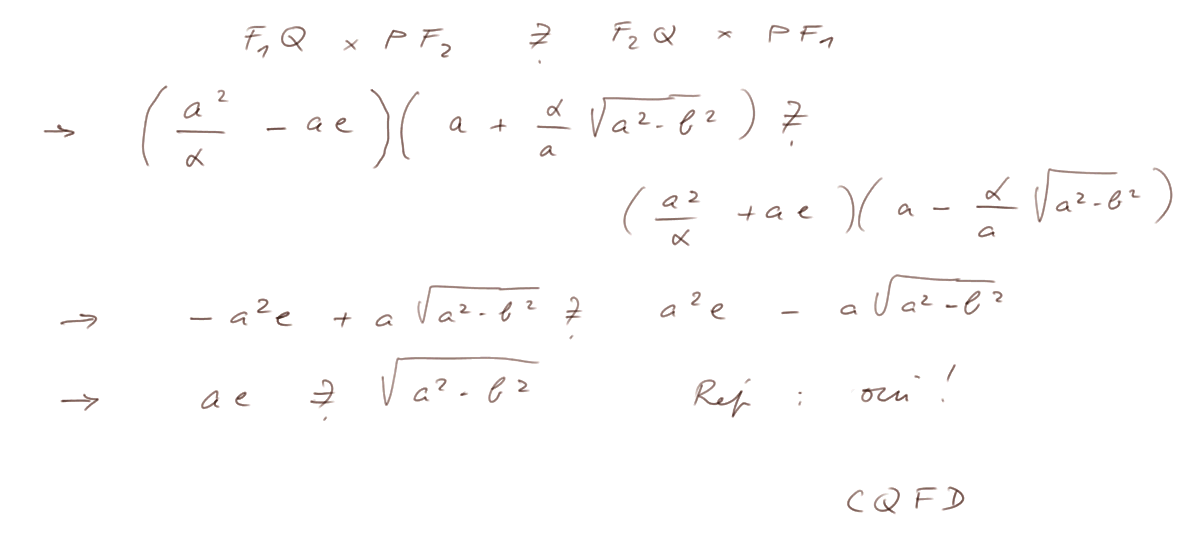 F₁Q × PF₂ ≟ F₂Q × PF₁
→ (a²/α - ae)(a + α/a √(a² - b²)) ≟
(a²/α + ae)(a - α/a √(a² - b²))
→ - a²e + a √(a² - b²) ≟ a²e - a √(a² - b²)
→ ae ≟ √(a² - b²) Rép : oui !
CQFD